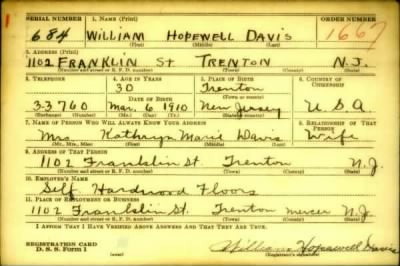 SERIAL NUMBER 1. NAME (Print) ORDER NUMBER
684 WILLIAM HOPEWELL DAVIS 1667
(First) (Middle) (Last)
2. ADDRESS (Print)
1102 FRANKLIN St TRENTON N.J.
(Number and street or R. F. D. number) (Town) (County) (State)
3. TELEPHONE 4. AGE IN YEARS 5. PLACE OF BIRTH 6. COUNTRY OF CITIZENSHIP
30 Trenton
(Town or county)
3-3760 DATE OF BIRTH
Mar. 6 1910 New Jersey U.S.A
(Exchange) (Number) (Mo.) (Day) (Yr.) (State or country)
7. NAME OF PERSON WHO WILL ALWAYS KNOW YOUR ADDRESS 8. RELATIONSHIP OF THAT PERSON
Mrs. Kathryn Marie Davis Wife
(Mr., Mrs., Miss) (First) (Middle) (Last)
9. ADDRESS OF THAT PERSON
1102 Franklin St. Trenton N.J.
(Number and street or R. F. D. number) (Town) (County) (State)
10. EMPLOYER'S NAME
Self. Hardwood Floors
11. PLACE OF EMPLOYMENT OR BUSINESS
1102 Franklin St. Trenton mercer N.J.
(Number and street or R. F. D. number) (Town) (County) (State)
I AFFIRM THAT I HAVE VERIFIED ABOVE ANSWERS AND THAT THEY ARE TRUE.
REGISTRATION CARD
D. S. S. Form 1 William Hopewell Davis
(Registrant's signature)